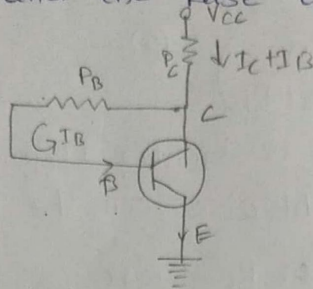 VCC
PC ↓ IC+IB
PB
C
GIB
B
E